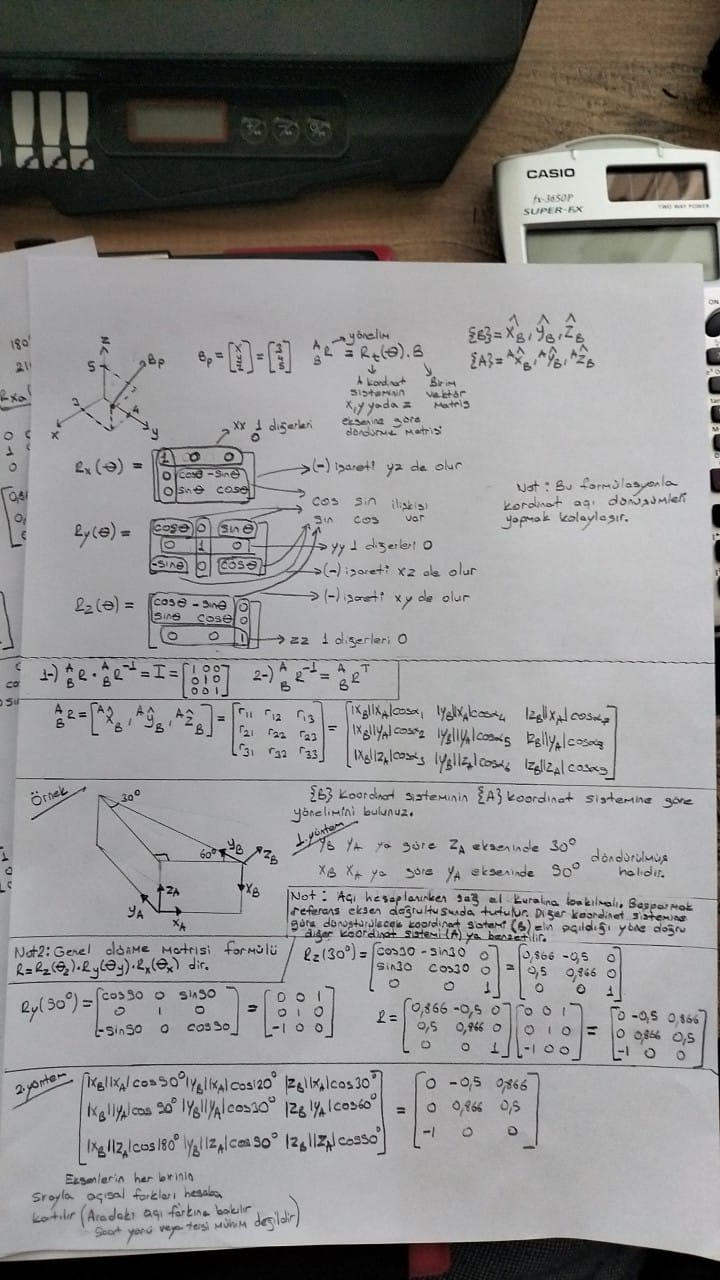 CASIO
fx-3650P
SUPER-FX
TWO WAY POWER
ON
180°
Z
5
Bp
3
4
X
y
Bp = [x y z] = [3 4 5]
A B R = Rt(θ).B
yönelim
A kordinat sisteminin x,y yada z eksenine göre döndürme matrisi
Birim vektör matris
{B} = X̂B, ŶB, ẐB
{A} = AX̂B, AŶB, AẐB
xx 1 diğerleri 0
Rx(θ) = [1 0 0; 0 cosθ -sinθ; 0 sinθ cosθ]
(-) işareti yz de olur
cos sin ilişkisi
sin cos var
Not: Bu formülasyonla
kordinat açı dönüşümleri
yapmak kolaylaşır.
Ry(θ) = [cosθ 0 sinθ; 0 1 0; -sinθ 0 cosθ]
yy 1 diğerleri 0
(-) işareti xz de olur
Rz(θ) = [cosθ -sinθ 0; sinθ cosθ 0; 0 0 1]
(-) işareti xy de olur
zz 1 diğerleri 0
1-) A B R . A B R⁻¹ = I = [1 0 0; 0 1 0; 0 0 1] 2-) A B R⁻¹ = A B Rᵀ
A B R = [AX̂B, AŶB, AẐB] = [r11 r12 r13; r21 r22 r23; r31 r32 r33] = [|XB||XA|cosα1 |yB||XA|cosα4 |zB||XA|cosα7; |XB||yA|cosα2 |yB||yA|cosα5 |zB||yA|cosα8; |XB||zA|cosα3 |yB||zA|cosα6 |zB||zA|cosα9]
Örnek
{B} koordinat sisteminin {A} koordinat sistemine göre
yönelimini bulunuz.
30°
60°
yB
zB
XB
zA
yA
XA
1.yöntem
yB yA ya göre ZA ekseninde 30°
XB XA ya göre yA ekseninde 90°
döndürülmüş
halidir.
Not: Açı hesaplanırken sağ el kuralına bakılmalı. Başparmak
referans eksen doğrultusunda tutulur. Diğer koordinat sistemine
göre dönüştürülecek koordinat sistemi (B) elin açıldığı yöne doğru
diğer koordinat sistemi (A) ya benzetilir.
Not2: Genel dönme matrisi formülü
R=Rz(θz).Ry(θy).Rx(θx) dir.
Rz(30°) = [cos30 -sin30 0; sin30 cos30 0; 0 0 1] = [0,866 -0,5 0; 0,5 0,866 0; 0 0 1]
Ry(90°) = [cos90 0 sin90; 0 1 0; -sin90 0 cos90] = [0 0 1; 0 1 0; -1 0 0]
R = [0,866 -0,5 0; 0,5 0,866 0; 0 0 1] [0 0 1; 0 1 0; -1 0 0] = [0 -0,5 0,866; 0 0,866 0,5; -1 0 0]
2.yöntem
[|XB||XA|cos90° |yB||XA|cos120° |zB||XA|cos30°
|XB||yA|cos 90° |yB||yA|cos30° |zB|yA|cos60°
|XB||zA|cos180° |yB||zA|cos90° |zB||zA|cos90°]
= [0 -0,5 0,866; 0 0,866 0,5; -1 0 0]
Eksenlerin her birinin
Sırayla açısal farkları hesaba
katılır (Aradaki açı farkına bakılır
Saat yönü veya tersi mühim değildir)